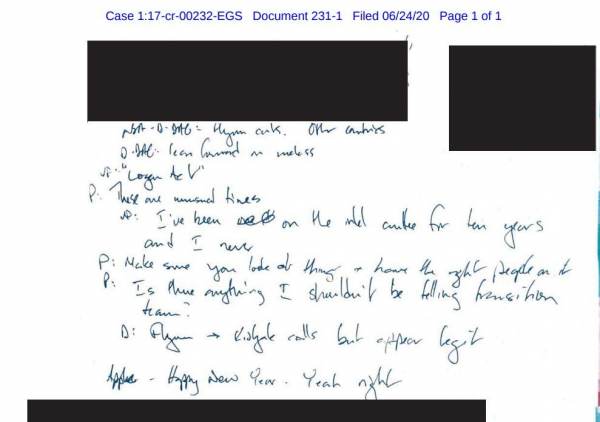 Case 1:17-cr-00232-EGS Document 231-1 Filed 06/24/20 Page 1 of 1
NSA-D-DAG: Flynn cuts. Other countries
D-DAG: lean forward on unclass
VP: "Logan Act"
P: These are unusual times
VP: I've been on the intel cmttee for ten years
and I never
P: Make sure you look at things + have the right people on it
P: Is there anything I shouldn't be telling transition
team?
D: Flynn → Kislyak calls but appear legit
Happy New Year. Yeah right